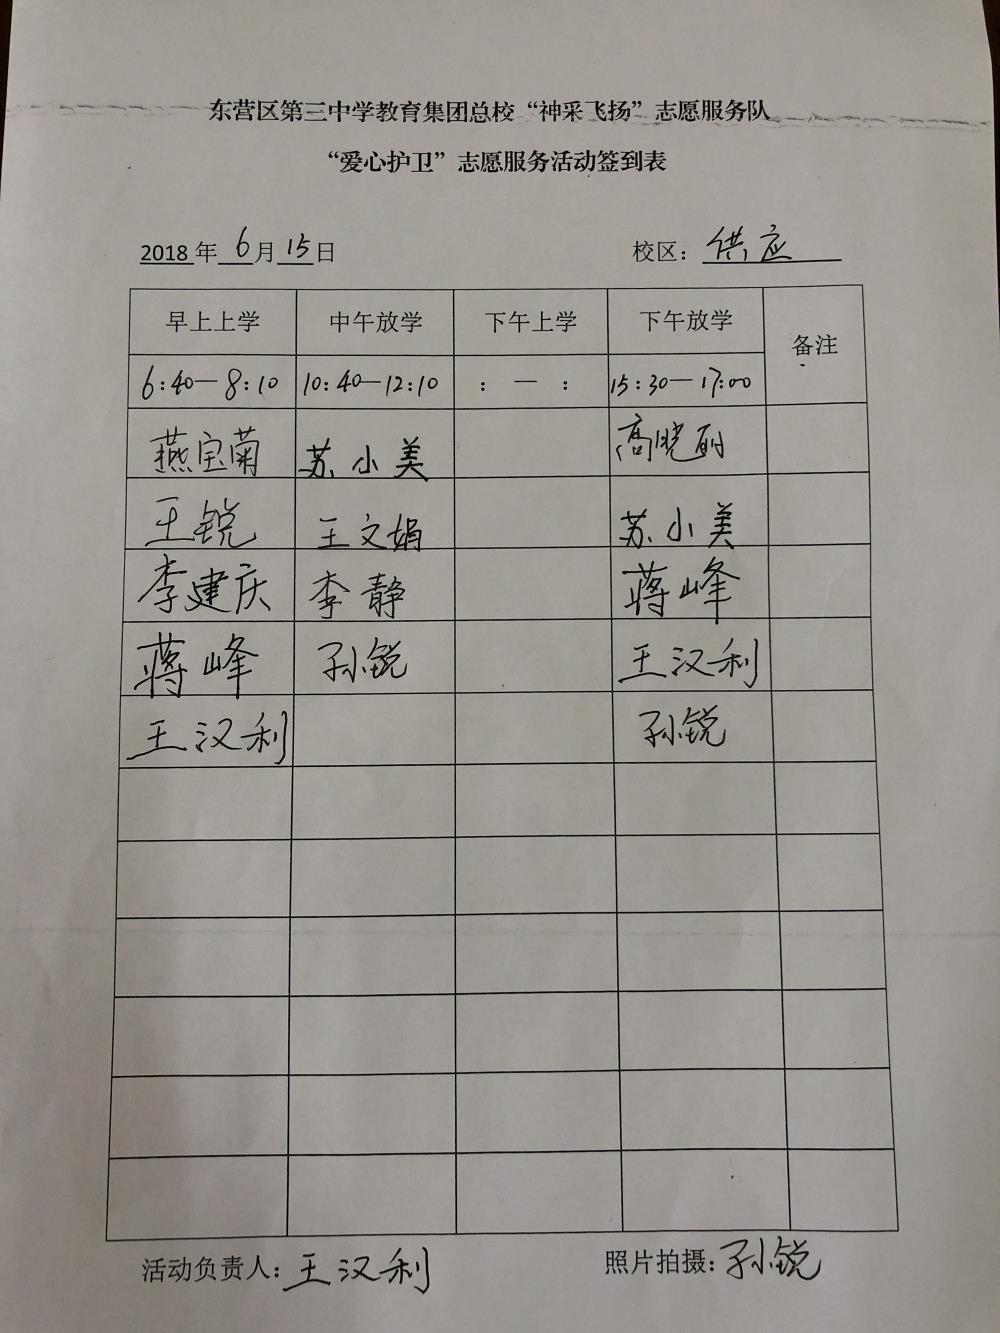 东营区第三中学教育集团总校“神采飞扬”志愿服务队
“爱心护卫”志愿服务活动签到表
2018年 6 月 15 日 校区：供应
早上上学 中午放学 下午上学 下午放学 备注
6:40—8:10 10:40—12:10 : — : 15:30—17:00
燕宝菊 苏小美 高晓丽
王锐 王文娟 苏小美
李建庆 李静 蒋峰
蒋峰 孙锐 王汉利
王汉利 孙锐
活动负责人：王汉利 照片拍摄：孙锐